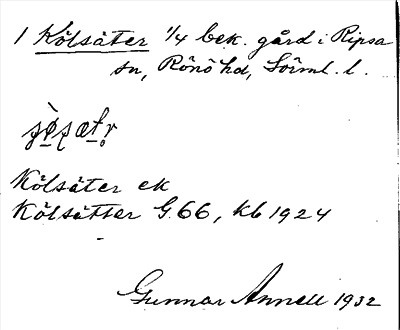 1 Kölsäter 1/4 bek. gård i Ripsa
sn, Rönö hd, Sörml. l.
Kölsäter ek
Kölsätter G. 66, kb 1924
Gunnar Annell 1932